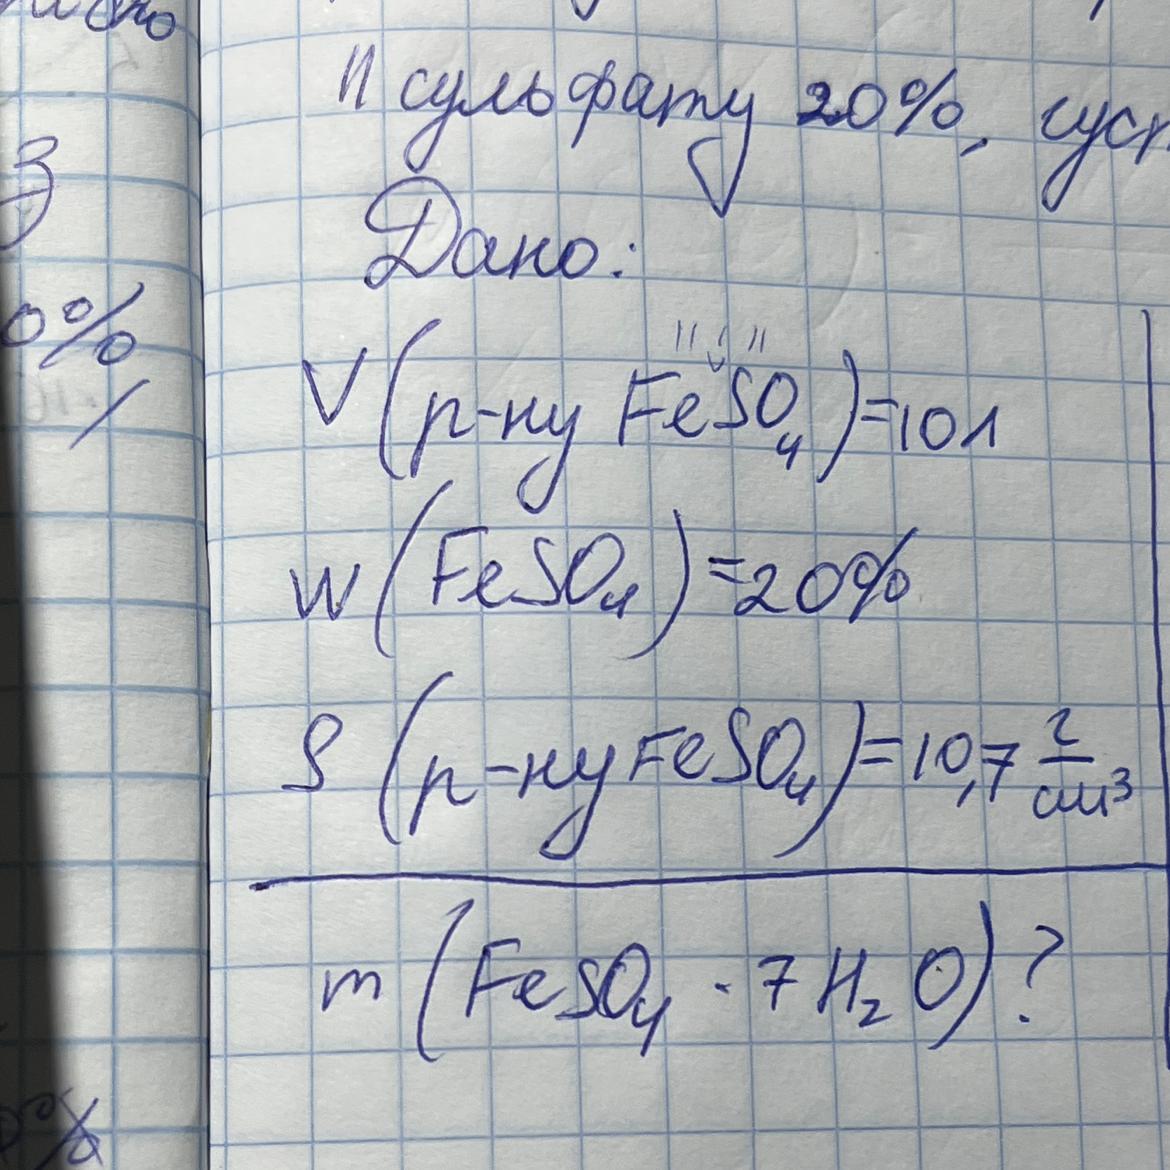 II сульфату 20%, густ
Дано:
V(р-ну FeSO₄)=10л
W(FeSO₄)=20%
ρ(р-ну FeSO₄)=10,7 г/см³
m(FeSO₄ · 7H₂O)?
0%